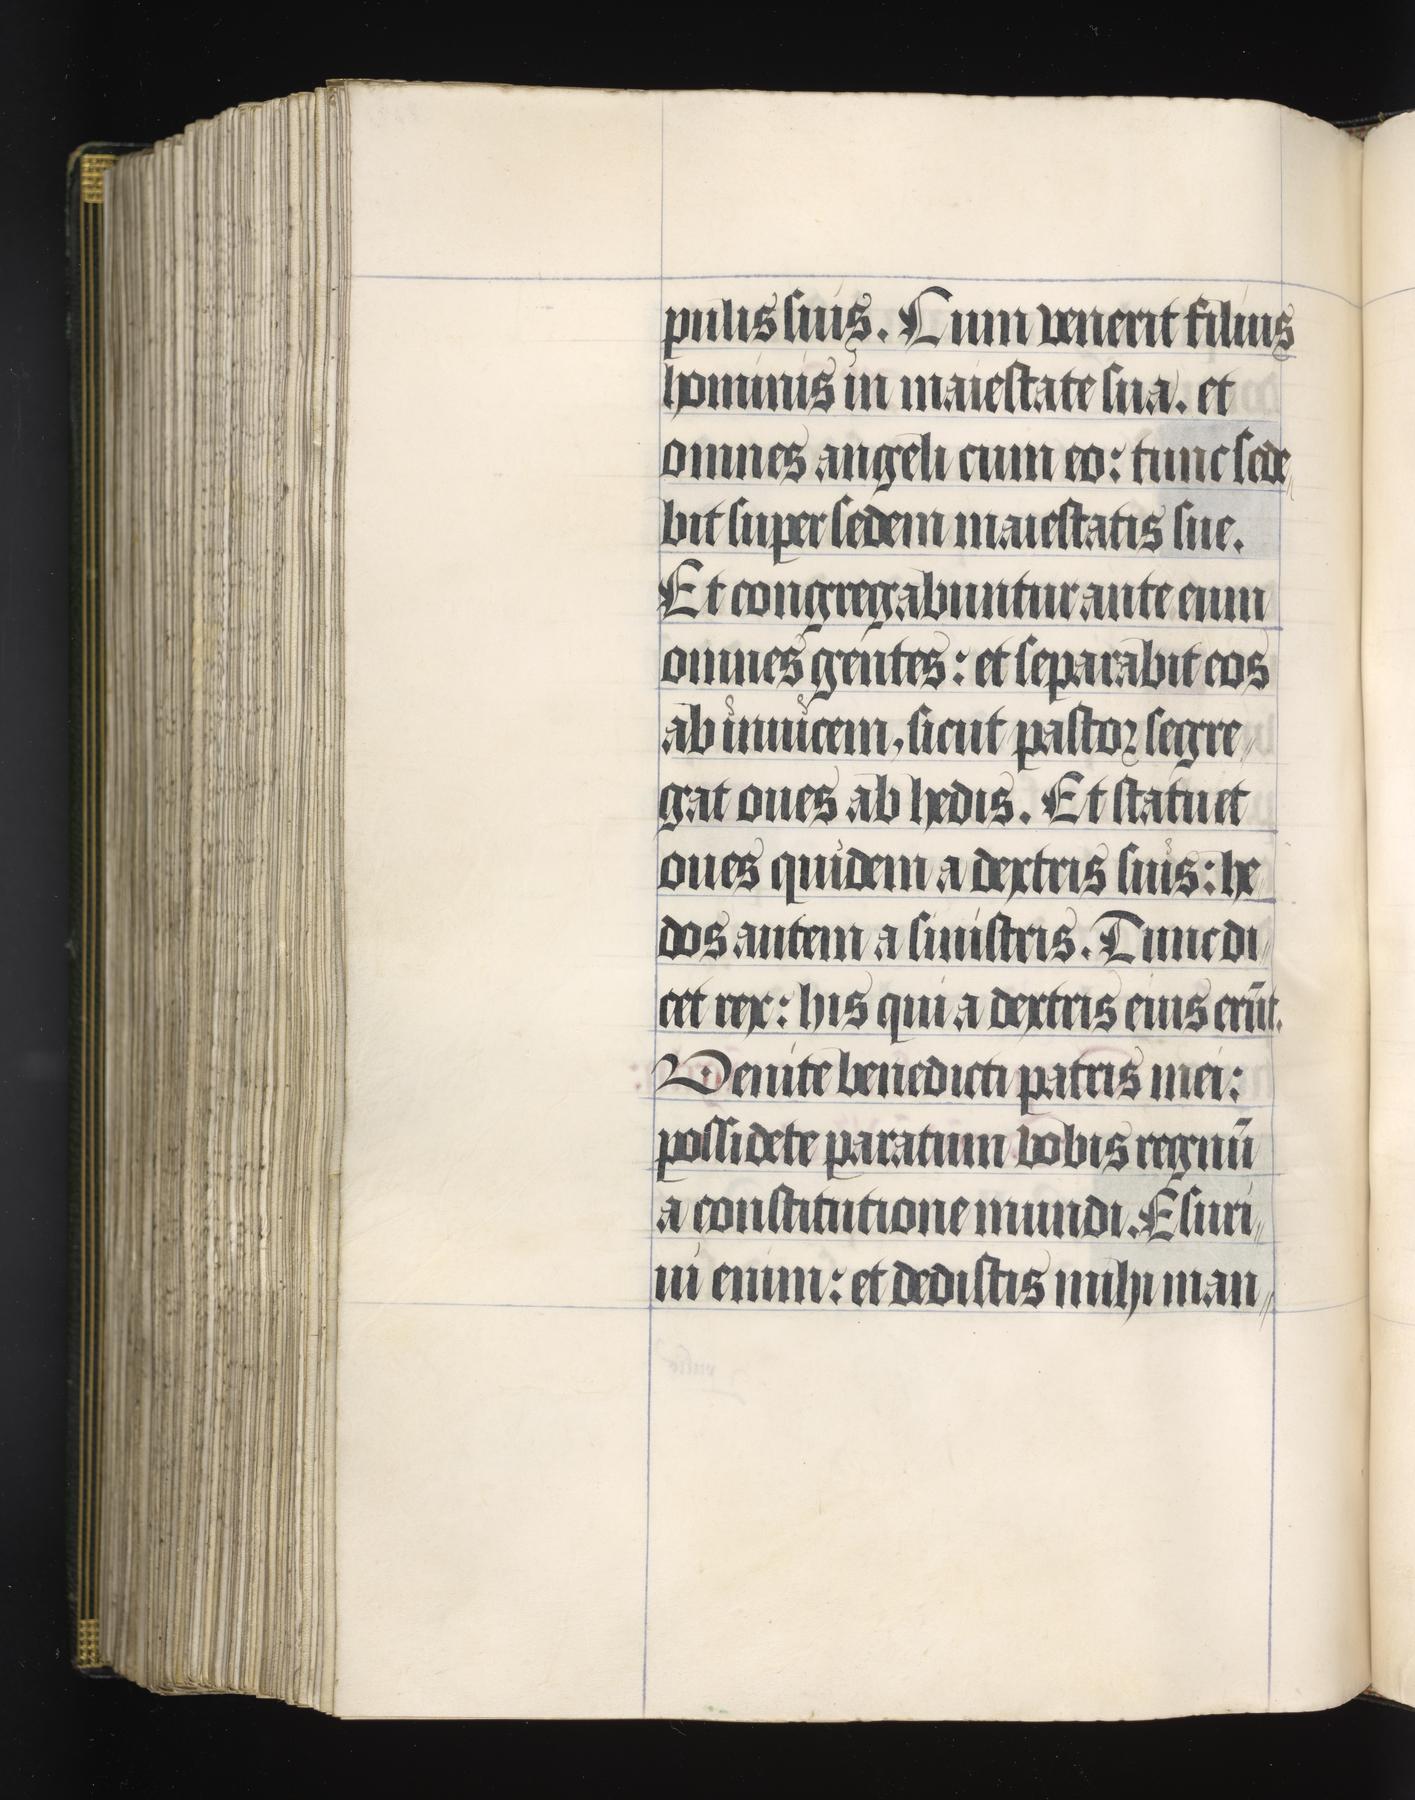 pulis suis. Cum venerit filius
hominis in maiestate sua. et
omnes angeli cum eo: tunc sede,,
bit super sedem maiestatis sue.
Et congregabuntur ante eum
omnes gentes: et separabit eos
ab inuicem, sicut pastor segre,,
gat oues ab hedis. Et statuet
oues quidem a dextris suis: he,,
dos autem a sinistris. Tunc di,,
cet rex: his qui a dextris eius erūt.
Venite benedicti patris mei:
possidete paratum vobis regnū
a constitutione mundi. Esuri,,
ui enim: et dedistis mihi man,,